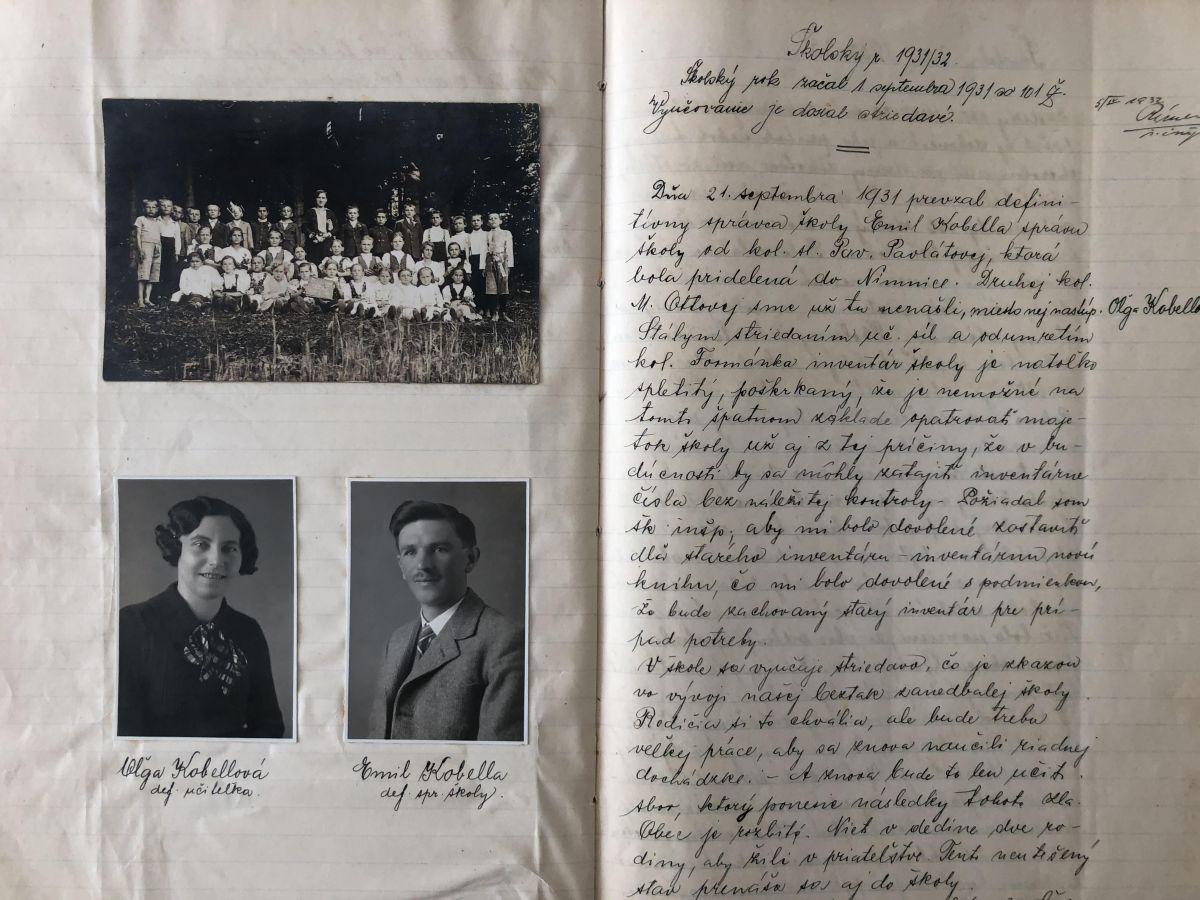 Oľga Kobellová
def. učitelka.
Emil Kobella
def. spr. školy.
Školský r. 1931/32.
Školský rok začal 1. septembra 1931 so 101 ž.
Vyučovanie je dosial striedavé.
5/IV 1932
Dňa 21. septembra 1931 prevzal defini-
tívny správca školy Emil Kobella správu
školy od kol. sl. Pav. Pavlátovej, ktorá
bola pridelená do Nimnice. Druhej kol.
M. Ottovej sme už tu nenašli, miesto nej nastúp. Oľga Kobellov
Stálym striedaním uč. síl a odumretím
kol. Formánka inventár školy je natolko
spletitý, poškrkaný, že je nemožné na
tomto špatnom základe opatrovať maje-
tok školy už aj z tej príčiny, že v bu-
dúcnosti by sa môhly zatajiť inventárne
čísla bez náležitej kontroly - Požiadal som
šk. inšp. aby mi bolo dovolené zostaviť
dla starého inventáru - inventárnu novú
knihu, čo mi bolo dovolené s podmienkou,
že bude zachovaný starý inventár pre prí-
pad potreby.
V škole sa vyučuje striedavo, čo je zkazou
vo vývoji našej beztak zanedbalej školy
Rodičia si to chvália, ale bude treba
velkej práce, aby sa znova naučili riadnej
dochádzke. - A znova bude to len učit.
sbor, ktorý ponesie následky tohoto zla.
Obec je rozbitá. Niet v dedine dve ro-
diny, aby žili v priateľstve. Tento neutešený
stav prenáša sa aj do školy.